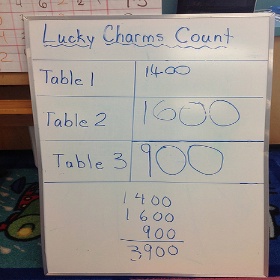 Lucky Charms Count
Table 1 1400
Table 2 1600
Table 3 900
1400
1600
900
3900